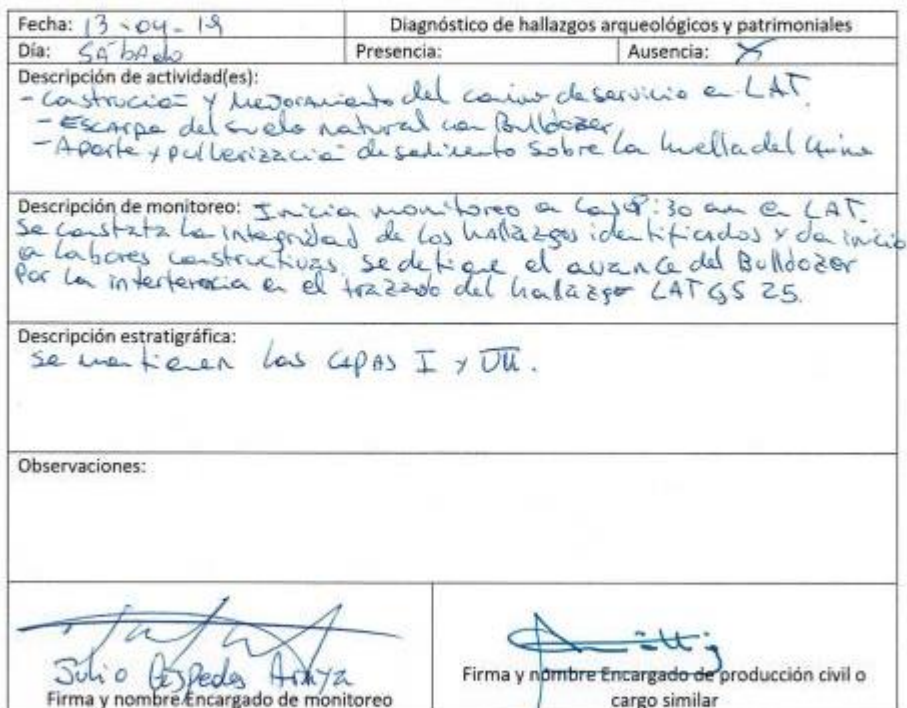 Fecha: 13-04-19
Diagnóstico de hallazgos arqueológicos y patrimoniales
Día: SÁbAdo
Presencia:
Ausencia: X
Descripción de actividad(es):
- Construción y Mejoramiento del camino de servicio en LAT.
- Escarpe del suelo natural con Bulldozer,
- Aporte y pulverización de sedimento sobre la huella del
Descripción de monitoreo: Inicia monitoreo a las 8:30 am en LAT.
Se constata la integridad de los hallazgos identificados y da inicio
a labores constructivas. Se detiene el avance del Bulldozer
Por la interferencia en el trazado del hallazgo LAT GS 25.
Descripción estratigráfica:
Se mantienen las CAPAS I y VII.
Observaciones:
Julio Céspedes Araya
Firma y nombre Encargado de monitoreo
Firma y nombre Encargado de producción civil o
cargo similar